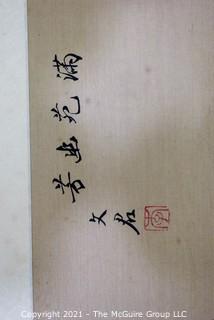 滿苑幽芳
文君
Copyright 2021 - The McGuire Group LLC